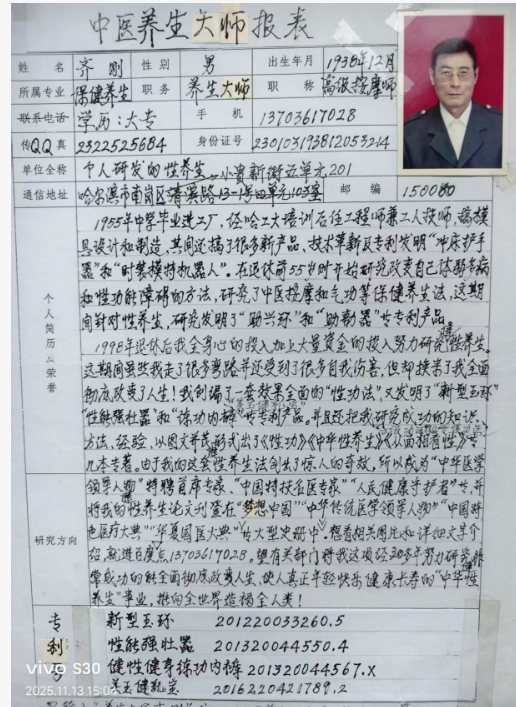 中医养生大师报表
姓名 齐刚 性别 男 出生年月 1938年12月
所属专业 保健养生 职务 养生大师 职称 高级按摩师
联系电话 学历：大专 手机 13703617028
传QQ真 2322525684 身份证号 230103193812053214
单位全称 个人研发的性养生 小资新街五单元201
通信地址 哈尔滨市南岗区清滨路13-1号四单元103室 邮编 150080
个人简历及荣誉
1955年中学毕业进工厂，经哈工大培训后任工程师兼工人技师，搞模
具设计和制造，其间还搞了很多新产品、技术革新及专利发明“冲床护手
器”和“时装模特机器人”。在退休前55岁时开始研究改变自己体弱多病
和性功能障碍的方法，研究了中医按摩和气功等保健养生法，这期
间针对性养生，研究发明了“助兴环”和“助勃器”专专利产品
1998年退休后我全身心的投入加上大量资金的投入努力研究性健养生。
这期间虽然我走了很多弯路并还受到了很多自我伤害，但却换苦了我全面
彻底改变了人生！我创编了一套效果全面的“性功法”，又发明了“新型玉环”
“性能强壮器”和“练功内裤”专专利产品。并且还把我研究成功的知识
方法、经验，以图文并茂形式出了《性功》《中华性养生》《从面相看性》专
九本专著。由于我的这套性养生法创出了惊人的奇效，所以成为“中华医学
领导人物”特聘首席专家、“中国特技名医专家”“人民健康守护者”专，并
将我的性养生论文刊登在“梦想中国”“中华传统医学领导人物”“中国特
色医疗大典”“华夏国医大典”专大型史册中。想看相关图片和详细文字介
绍，就进百度点13703617028。望有关部门将我这项经30多年努力研究非
常成功的能全面彻底改变人生，使人真正年轻快乐健康长寿的“中华性
养生”事业，推向全世界造福全人类！
研究方向
专利号
新型玉环 201220033260.5
性能强壮器 201320044550.4
健性健身练功内裤 201320044567.X
2016220421789.2
vivo S30
2025.11.13 15:0